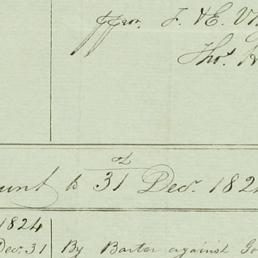 for J. & E.
Thos.
to 31 Decr. 182
1824
Decr. 31 By Barter against